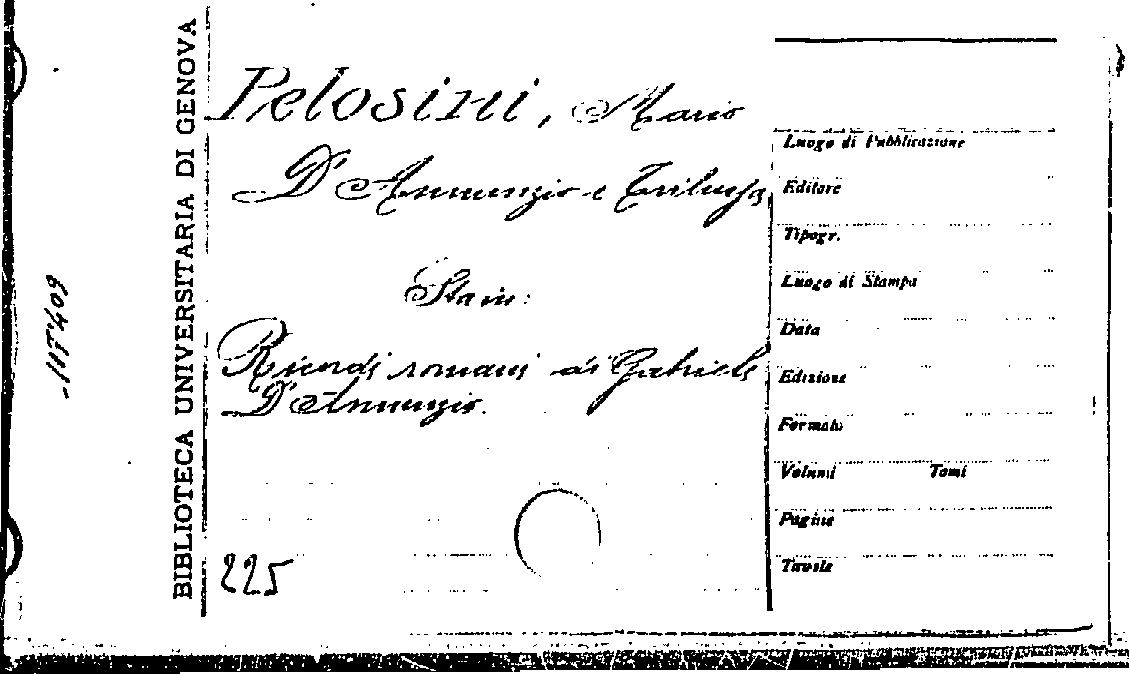 BIBLIOTECA UNIVERSITARIA DI GENOVA
Pelosini, Mario
D'Annunzio e Trilussa
Sta in:
Ricordi romani di Gabriele
D'Annunzio.
225
Luogo di Pubblicazione
Editore
Tipogr.
Luogo di Stampa
Data
Edizione
Formato
Volumi Tomi
Pagine
Tavole